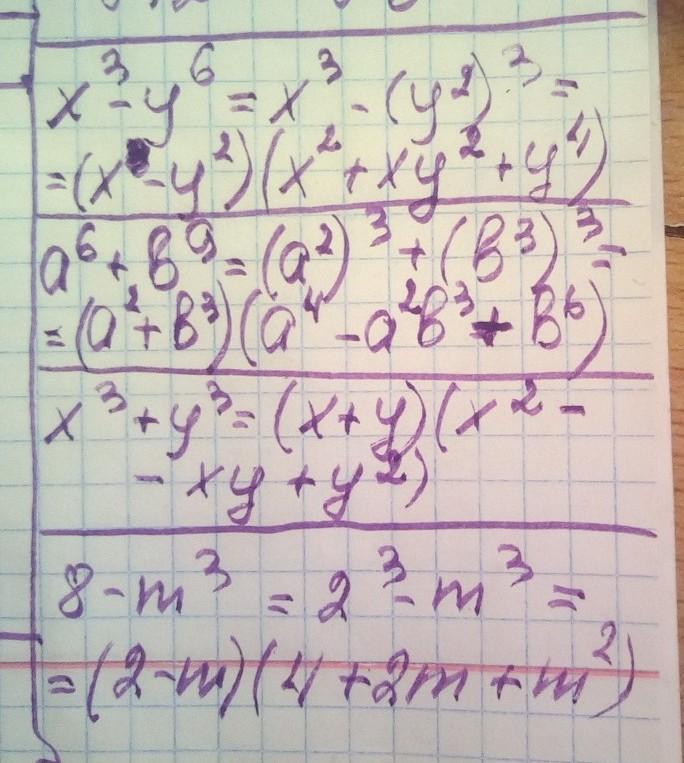 x³ - y⁶ = x³ - (y²)³ =
= (x - y²)(x² + xy² + y⁴)
a⁶ + b⁹ = (a²)³ + (b³)³ =
= (a² + b³)(a⁴ - a²b³ + b⁶)
x³ + y³ = (x + y)(x² -
- xy + y²)
8 - m³ = 2³ - m³ =
= (2 - m)(4 + 2m + m²)